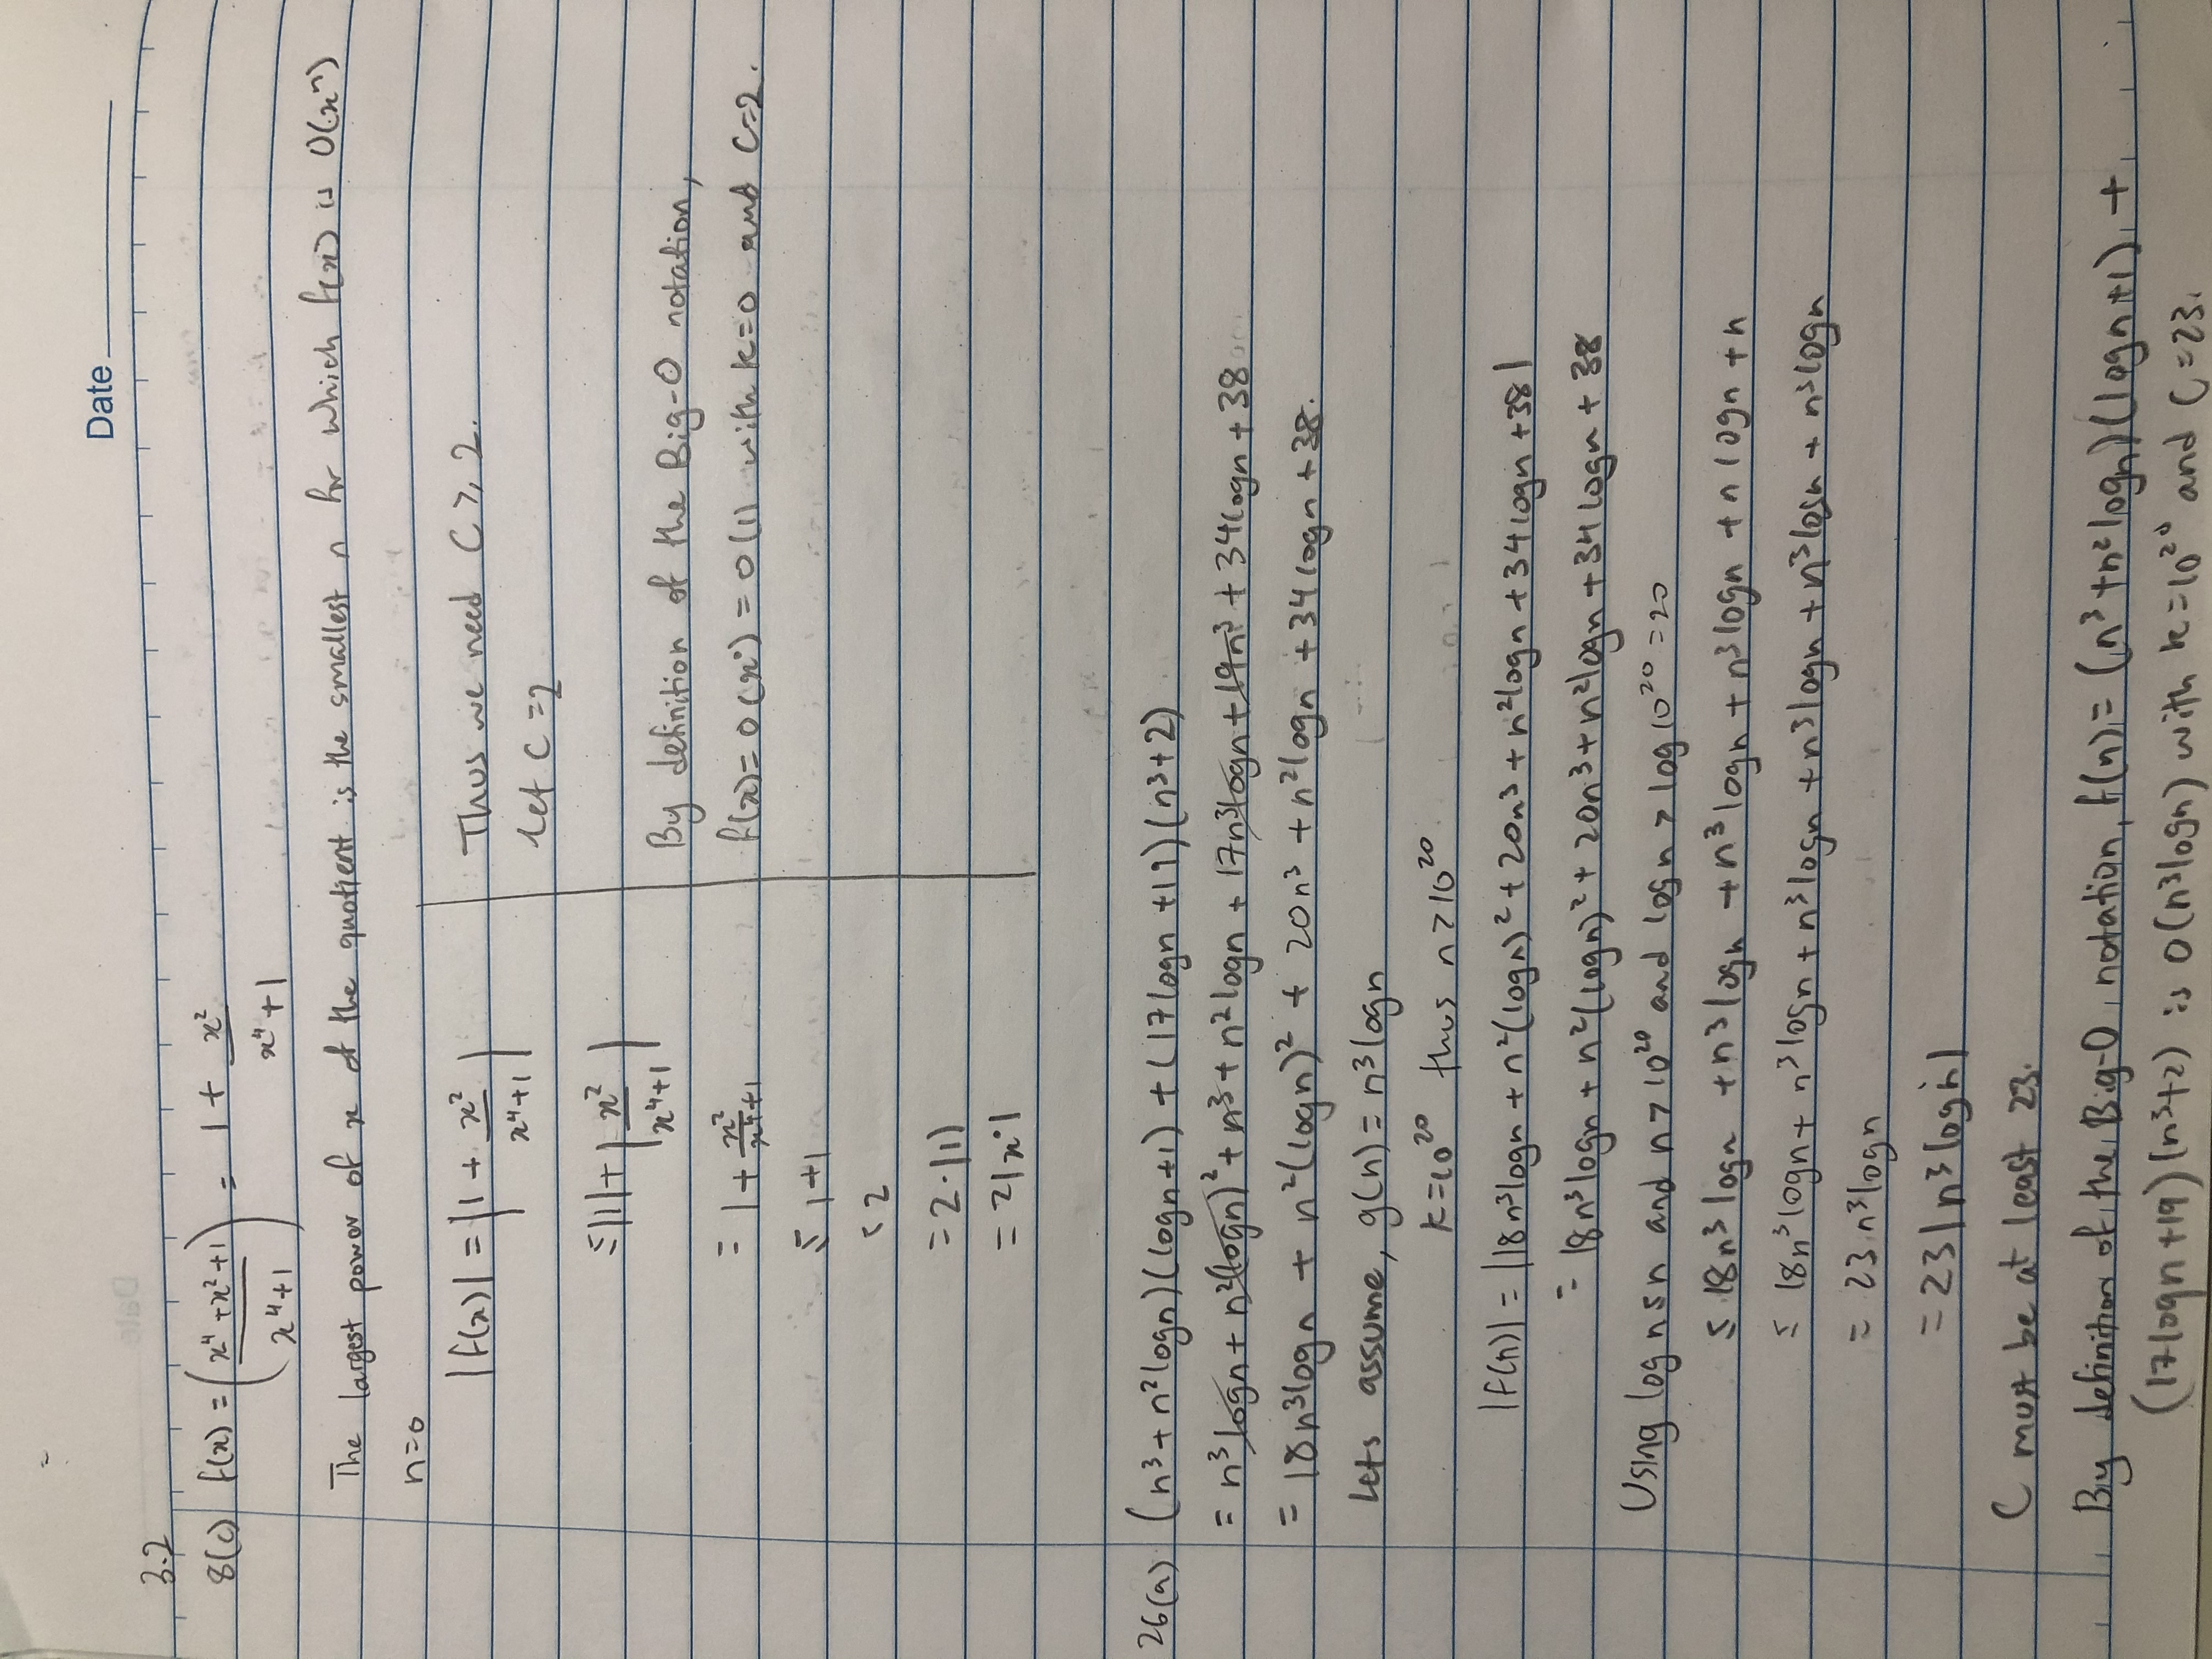 Date
3.2
8(c) f(x) = (x⁴+x²+1 / x⁴+1) = 1 + x² / x⁴+1
The largest power of x of the quotient is the smallest n for which f(x) is O(xⁿ)
n=0
|f(x)| = |1 + x² / x⁴+1|
≤ |1| + |x² / x⁴+1|
= 1 + x² / x⁴+1
≤ 1+1
< 2
= 2·|1|
= 2|x⁰|
Thus we need C ≥ 2.
Let C = 2
By definition of the Big-O notation,
f(x) = O(x⁰) = O(1) with k=0 and C=2.
26(a) (n³+n²logn)(logn+1) + (17logn+19)(n³+2)
= n³logn + n²(logn)² + n³ + n²logn + 17n³logn + 19n³ + 34logn + 38
= 18n³logn + n²(logn)² + 20n³ + n²logn + 34logn + 38.
Lets assume, g(n) = n³logn
k=10²⁰ thus n>10²⁰
|f(n)| = |18n³logn + n²(logn)² + 20n³ + n²logn + 34logn + 38|
= 18n³logn + n²(logn)² + 20n³ + n²logn + 34logn + 38
Using logn≤n and n>10²⁰ and logn > log10²⁰ = 20
≤ 18n³logn + n³logn + n³logn + n³logn + nlogn + n
≤ 18n³logn + n³logn + n³logn + n³logn + n³logn + n³logn
= 23n³logn
= 23|n³logn|
C must be at least 23.
By definition of the Big-O notation, f(n) = (n³+n²logn)(logn+1) +
(17logn+19)(n³+2) is O(n³logn) with k=10²⁰ and C=23.